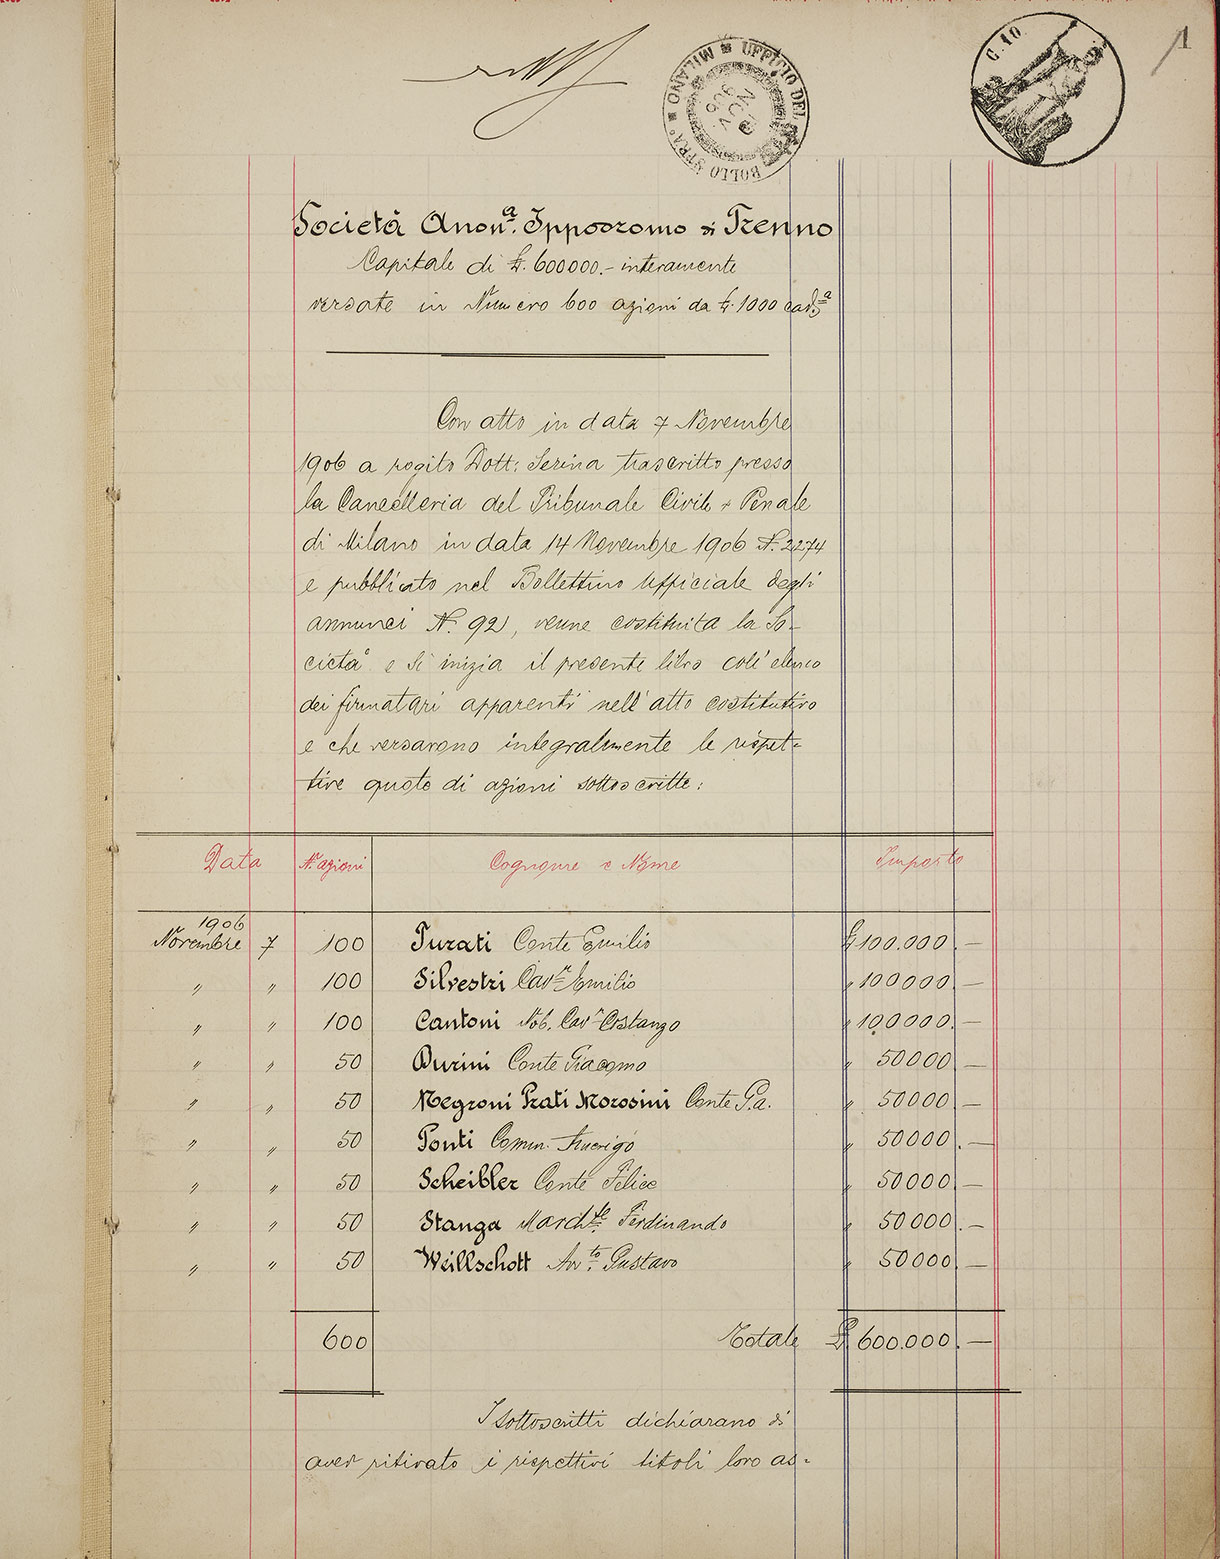 1
C. 10
MILANO UFFICIO DEL BOLLO STRA°
Società Anon.ª Ippodromo di Trenno
Capitale di £. 600000.- interamente
versate in Numero 600 azioni da £. 1000 cad.ª
Con atto in data 7 Novembre
1906 a rogito Dott: Serina trascritto presso
la Cancelleria del Tribunale Civile e Penale
di Milano in data 14 Novembre 1906 N. 2274
e pubblicato nel Bollettino Ufficiale degli
annunci N. 92, venne costituita la So-
cietà e si inizia il presente libro coll'elenco
dei firmatari apparenti nell'atto costitutivo
e che versarono integralmente le rispet-
tive quote di azioni sottoscritte:
Data N. azioni Cognome e Nome Importo
1906
Novembre 7 100 Turati Conte Emilio £ 100.000.—
" " 100 Silvestri Cav.r Emilio " 100000.—
" " 100 Cantoni Nob. Cav.r Costanzo " 100000.—
" " 50 Durini Conte Giacomo " 50000.—
" " 50 Negroni Prati Morosini Conte G.a. " 50000.—
" " 50 Ponti Comm. " 50000.—
" " 50 Scheibler Conte Felice " 50000.—
" " 50 Stanga March.se Ferdinando " 50000.—
" " 50 Weillschott Gustavo " 50000.—
600 Totale £. 600.000.—
I sottoscritti dichiarano di
aver ritirato i rispettivi titoli loro as-